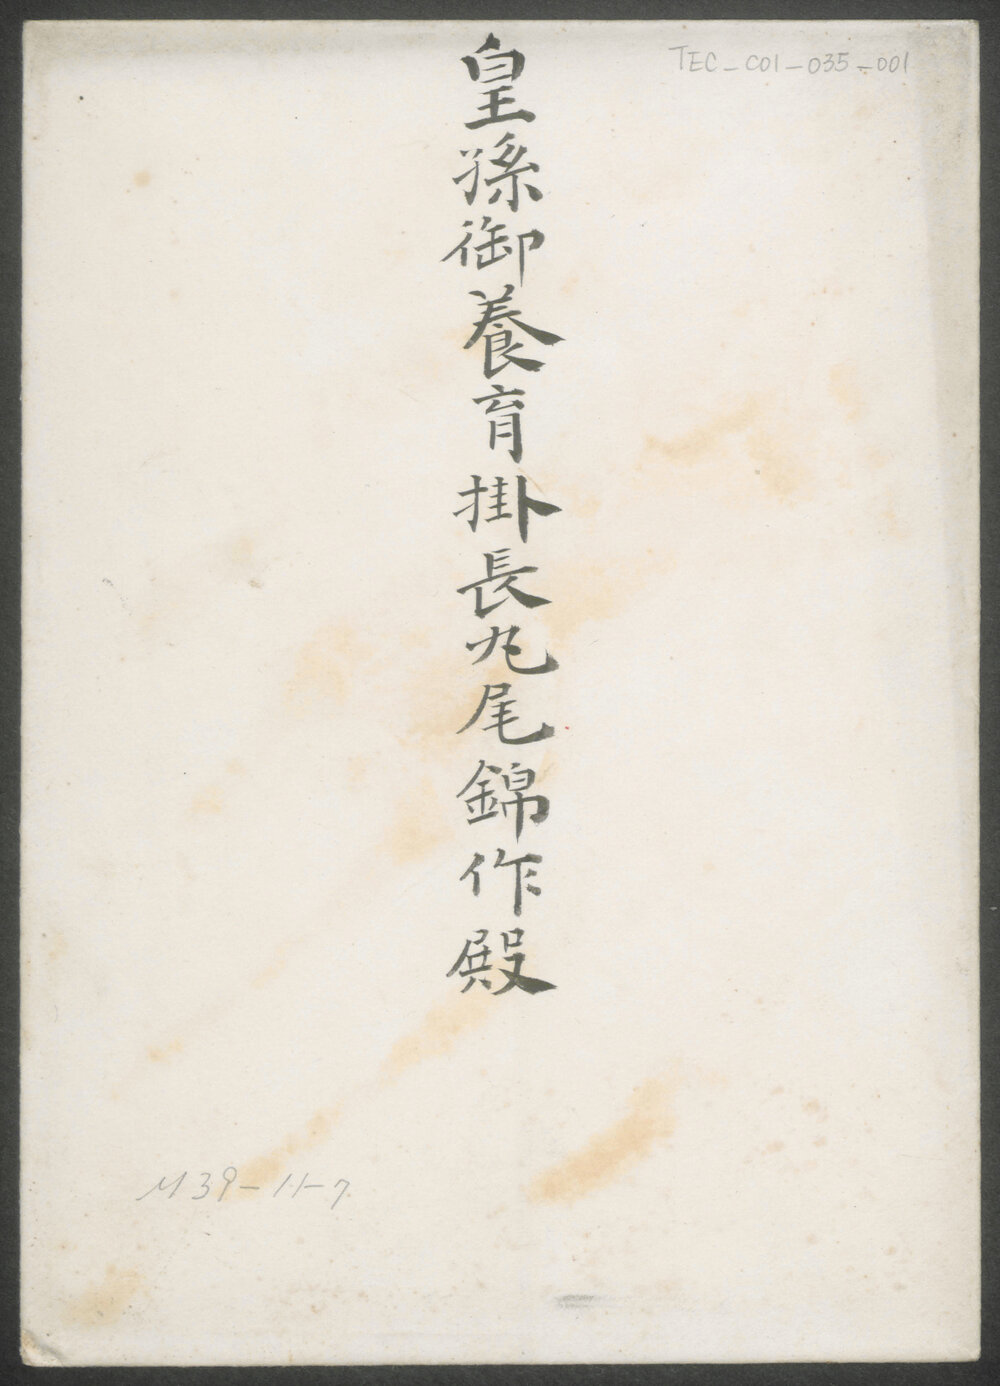 TEC-C01-035-001
皇孫御養育掛長丸尾錦作殿
M39-11-7